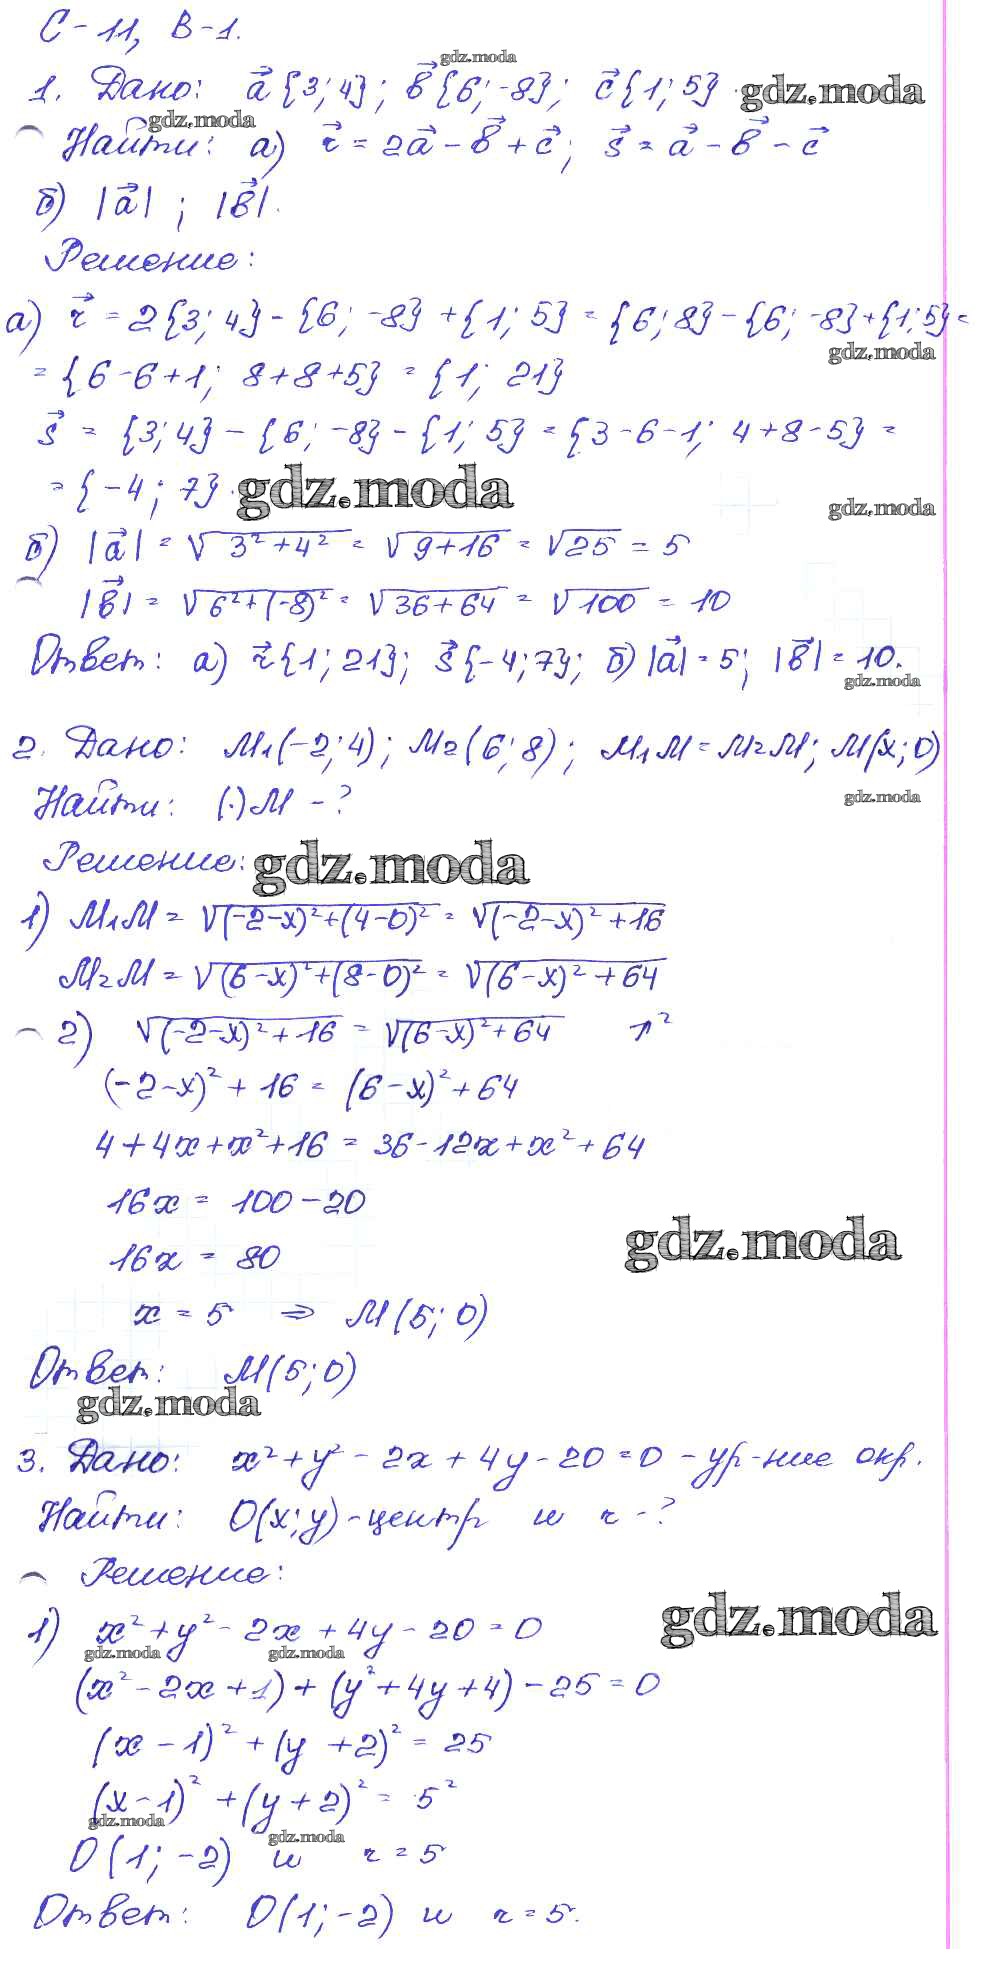 С-11, В-1.
gdz.moda
1. Дано: a⃗{3; 4}; b⃗{6; -8}; c⃗{1; 5} gdz.moda
gdz.moda
Найти: а) r⃗ = 2a⃗ - b⃗ + c⃗; s⃗ = a⃗ - b⃗ - c⃗
б) |a⃗| ; |b⃗|.
Решение:
а) r⃗ = 2{3; 4} - {6; -8} + {1; 5} = {6; 8} - {6; -8} + {1; 5} =
gdz.moda
= {6-6+1; 8+8+5} = {1; 21}
s⃗ = {3; 4} - {6; -8} - {1; 5} = {3-6-1; 4+8-5} =
= {-4; 7}. gdz.moda
gdz.moda
б) |a⃗| = √(3²+4²) = √(9+16) = √25 = 5
|b⃗| = √(6²+(-8)²) = √(36+64) = √100 = 10
Ответ: а) r⃗{1; 21}; s⃗{-4; 7}; б) |a⃗| = 5; |b⃗| = 10.
gdz.moda
2. Дано: M₁(-2; 4); M₂(6; 8); M₁M = M₂M; M(x; 0)
gdz.moda
Найти: (·)M - ?
Решение: gdz.moda
1) M₁M = √((-2-x)²+(4-0)²) = √((-2-x)²+16)
M₂M = √((6-x)²+(8-0)²) = √((6-x)²+64)
2) √((-2-x)²+16) = √((6-x)²+64) ↑²
(-2-x)² + 16 = (6-x)² + 64
4+4x+x²+16 = 36-12x+x²+64
16x = 100-20
gdz.moda
16x = 80
x = 5 ⇒ M(5; 0)
Ответ: M(5; 0)
gdz.moda
3. Дано: x²+y²-2x+4y-20=0 - ур-ние окр.
Найти: O(x; y) - центр и r - ?
Решение:
gdz.moda
1) x²+y²-2x+4y-20=0
gdz.moda gdz.moda
(x²-2x+1)+(y²+4y+4)-25=0
(x-1)²+(y+2)²=25
(x-1)²+(y+2)²=5²
gdz.moda gdz.moda
O(1; -2) и r=5
Ответ: O(1; -2) и r=5.